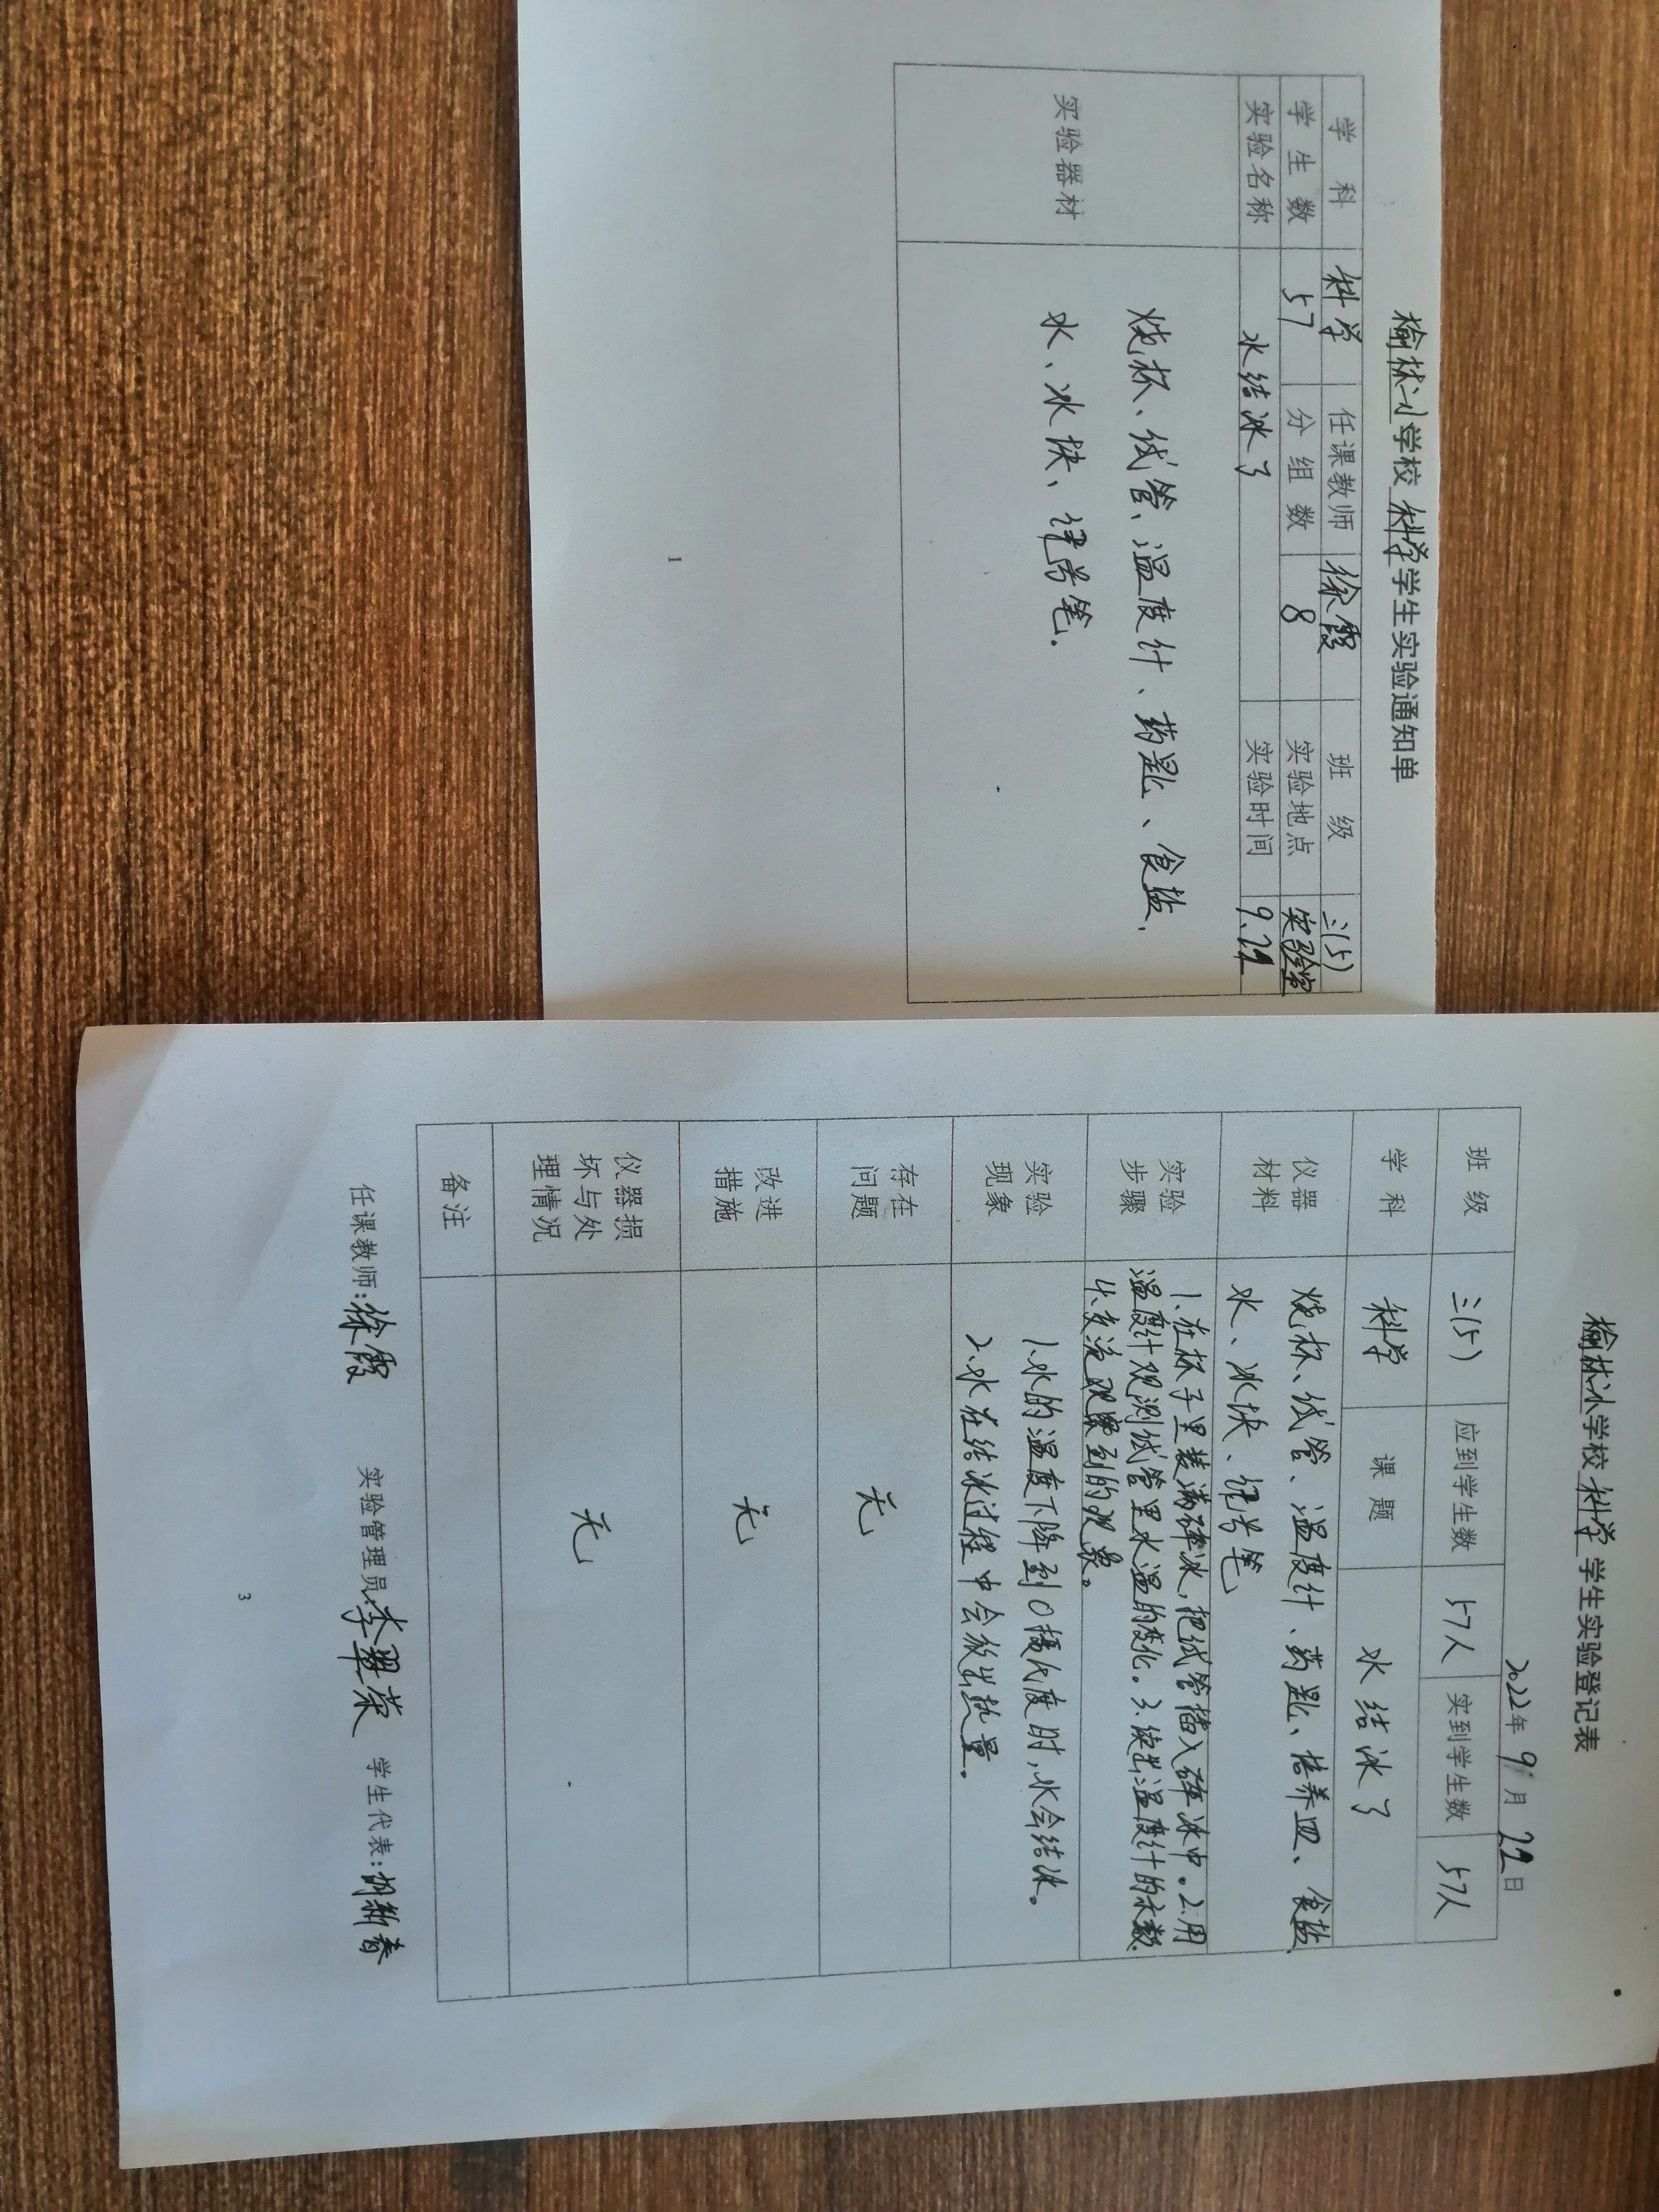 榆林小学校 科学 学生实验通知单
学 科 科学 任课教师 徐霞 班 级 三(5)
学 生 数 57 分 组 数 8 实验地点 实验室
实验名称 水结冰了 实验时间 9.22
实验器材
烧杯、试管、温度计、药匙、食盐、
水、冰块、记号笔.
1
榆林小学校 科学 学生实验登记表
2022年 9月 22日
班 级 三(5) 应到学生数 57人 实到学生数 57人
学 科 科学 课 题 水结冰了
仪器
材料
烧杯、试管、温度计、药匙、培养皿、食盐、
水、冰块、记号笔
实验
步骤
1.在杯子里装满碎冰,把试管插入碎冰中。2.用
温度计观测试管里水温的变化。3.读出温度计的示数.
4.交流观察到的现象。
实验
现象
1.水的温度下降到0摄氏度时,水会结冰。
2.水在结冰过程中会放出热量。
存在
问题
无
改进
措施
无
仪器损
坏与处
理情况
无
备注
任课教师:徐霞 实验管理员:李翠荣 学生代表:胡新春
3